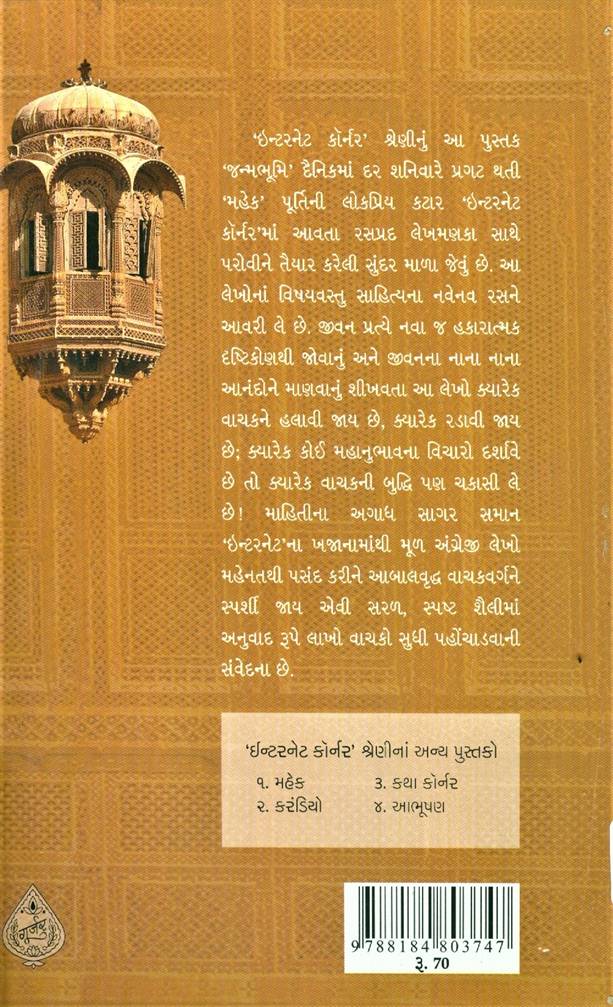 ‘ઇન્ટરનેટ કૉર્નર’ શ્રેણીનું આ પુસ્તક
‘જન્મભૂમિ’ દૈનિકમાં દર શનિવારે પ્રગટ થતી
‘મહેક’ પૂર્તિની લોકપ્રિય કટાર ‘ઇન્ટરનેટ
કૉર્નર’માં આવતા રસપ્રદ લેખમણકા સાથે
પરોવીને તૈયાર કરેલી સુંદર માળા જેવું છે. આ
લેખોનાં વિષયવસ્તુ સાહિત્યના નવેનવ રસને
આવરી લે છે. જીવન પ્રત્યે નવા જ હકારાત્મક
દૃષ્ટિકોણથી જોવાનું અને જીવનના નાના નાના
આનંદોને માણવાનું શીખવતા આ લેખો ક્યારેક
વાચકને હલાવી જાય છે, ક્યારેક રડાવી જાય
છે; ક્યારેક કોઈ મહાનુભાવના વિચારો દર્શાવે
છે તો ક્યારેક વાચકની બુદ્ધિ પણ ચકાસી લે
છે! માહિતીના અગાધ સાગર સમાન
‘ઇન્ટરનેટ’ના ખજાનામાંથી મૂળ અંગ્રેજી લેખો
મહેનતથી પસંદ કરીને આબાલવૃદ્ધ વાચકવર્ગને
સ્પર્શી જાય એવી સરળ, સ્પષ્ટ શૈલીમાં
અનુવાદ રૂપે લાખો વાચકો સુધી પહોંચાડવાની
સંવેદના છે.
‘ઈન્ટરનેટ કૉર્નર’ શ્રેણીનાં અન્ય પુસ્તકો
૧. મહેક ૩. કથા કૉર્નર
૨. કરંડિયો ૪. આભૂષણ
ગૂર્જર
9788184803747
રૂ. 70